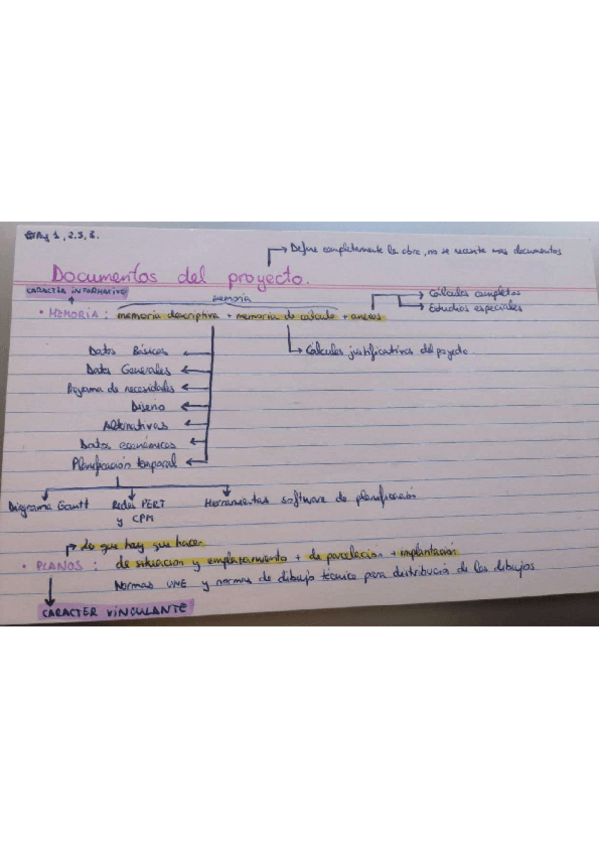 1, 2, 3, 8.
Define completamente la obra, no se necesita más documentos
Documentos del proyecto.
CARÁCTER INFORMATIVO
memoria
• MEMORIA: memoria descriptiva + memoria de cálculo + anexos
Cálculos completos
Estudios especiales
Cálculos justificativos del proyecto
Datos Básicos
Datos Generales
Programa de necesidades
Diseño
Alternativas
Datos económicos
Planificación temporal
Diagrama Gantt
Redes PERT
y CPM
Herramientas software de planificación
Lo que hay que hacer
• PLANOS: de situación y emplazamiento + de parcelación + implantación
Normas UNE y normas de dibujo técnico para distribución de los dibujos
CARÁCTER VINCULANTE